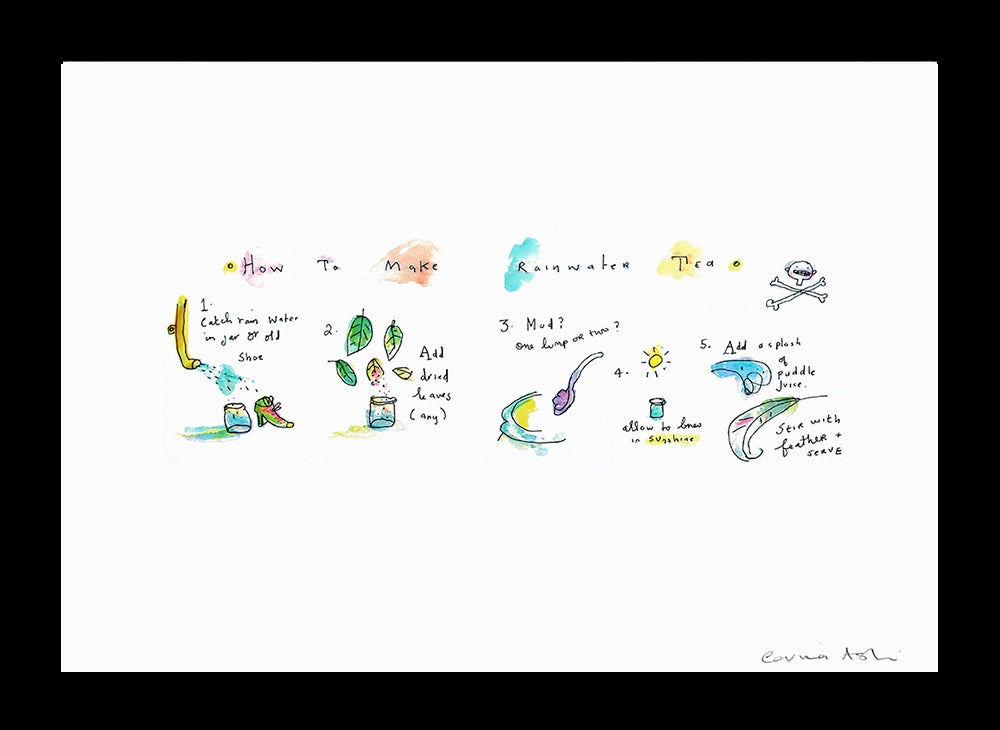 How To Make Rainwater Tea
1.
Catch rain Water
in jar or old
Shoe
2.
Add
dried
leaves
(any)
3. Mud?
one lump or two?
4.
allow to brew
in sunshine
5. Add a splash
of
puddle
juice.
Stir with
feather +
serve